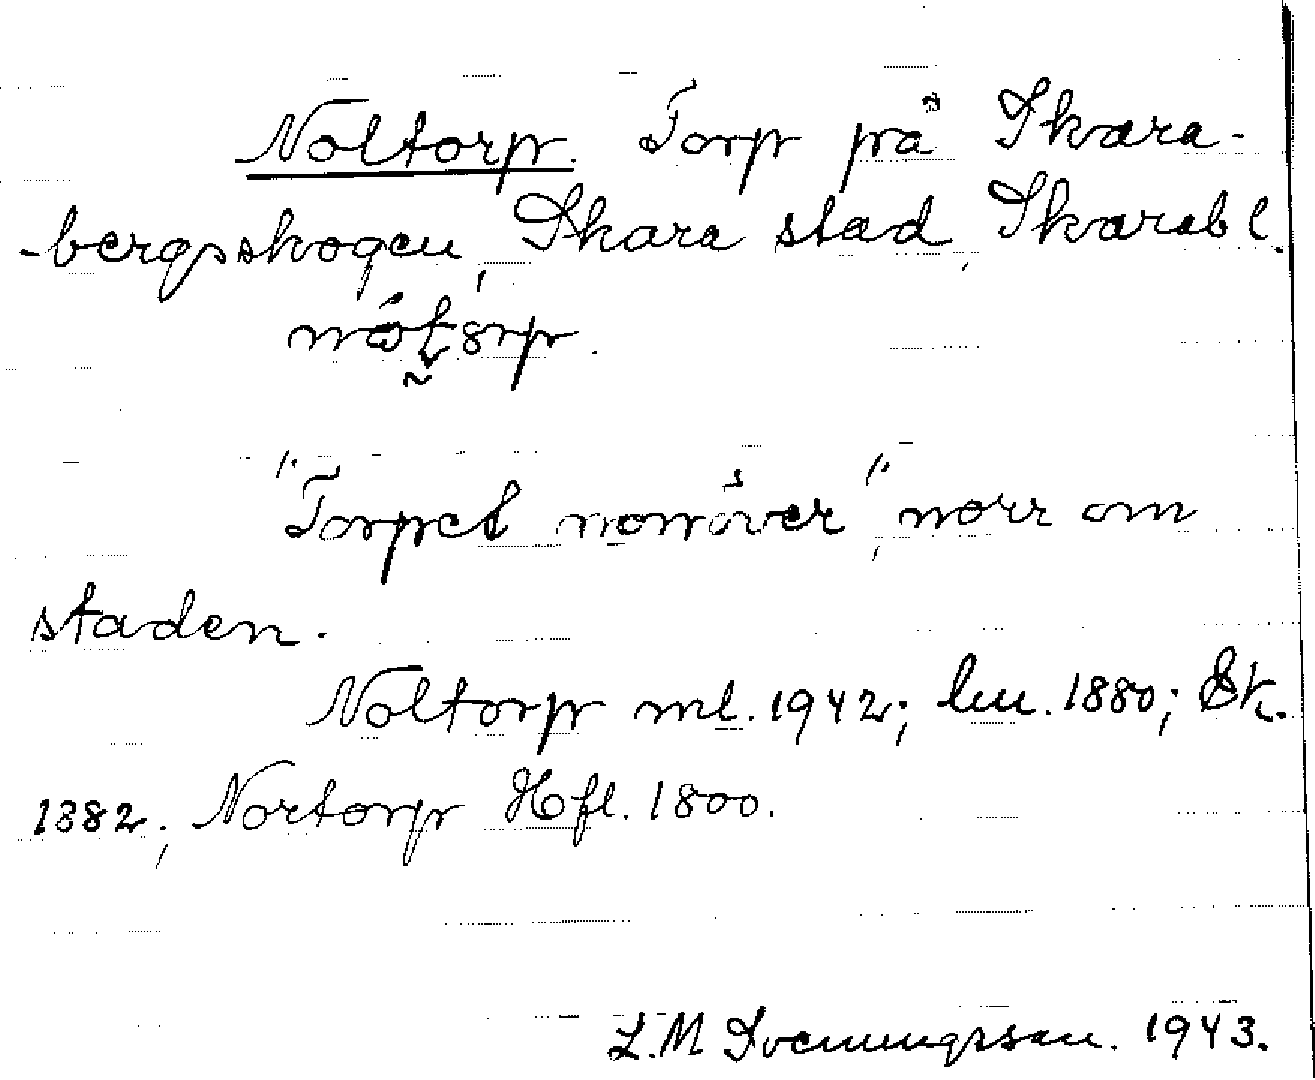 Noltorp. Torp på Skara-
-bergsskogen, Skara stad, Skarab l.
"Torpet norröver", norr om
staden.
Noltorp ml. 1942; lm. 1880; Ek.
1882; Nortorp Hfl. 1800.
L.M Svenungsson. 1943.